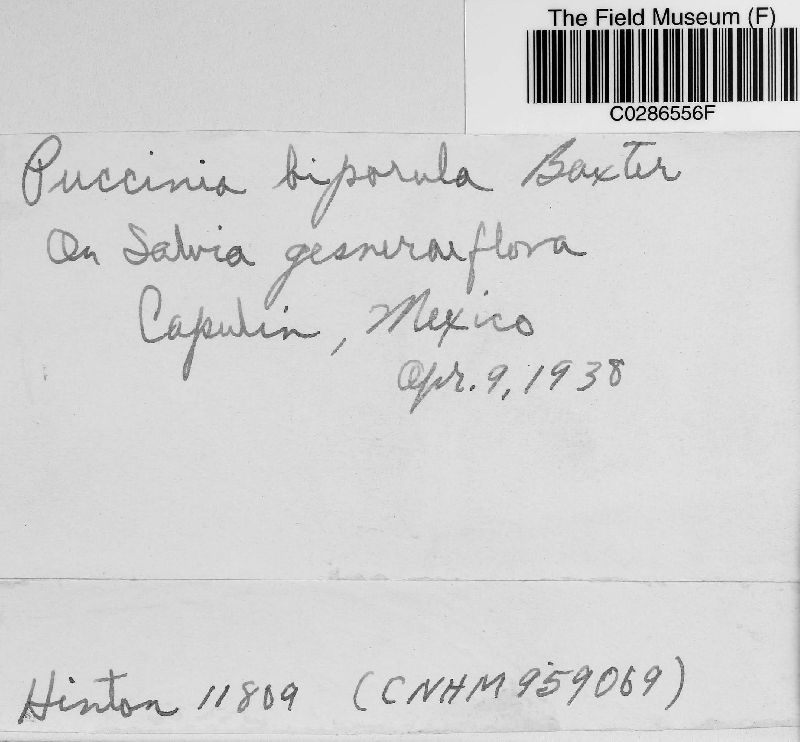 The Field Museum (F)
C0286556F
Puccinia biporula Baxter
On Salvia gesneraeflora
Capulin, Mexico
Apr. 9, 1938
Hinton 11809 (CNHM 959069)